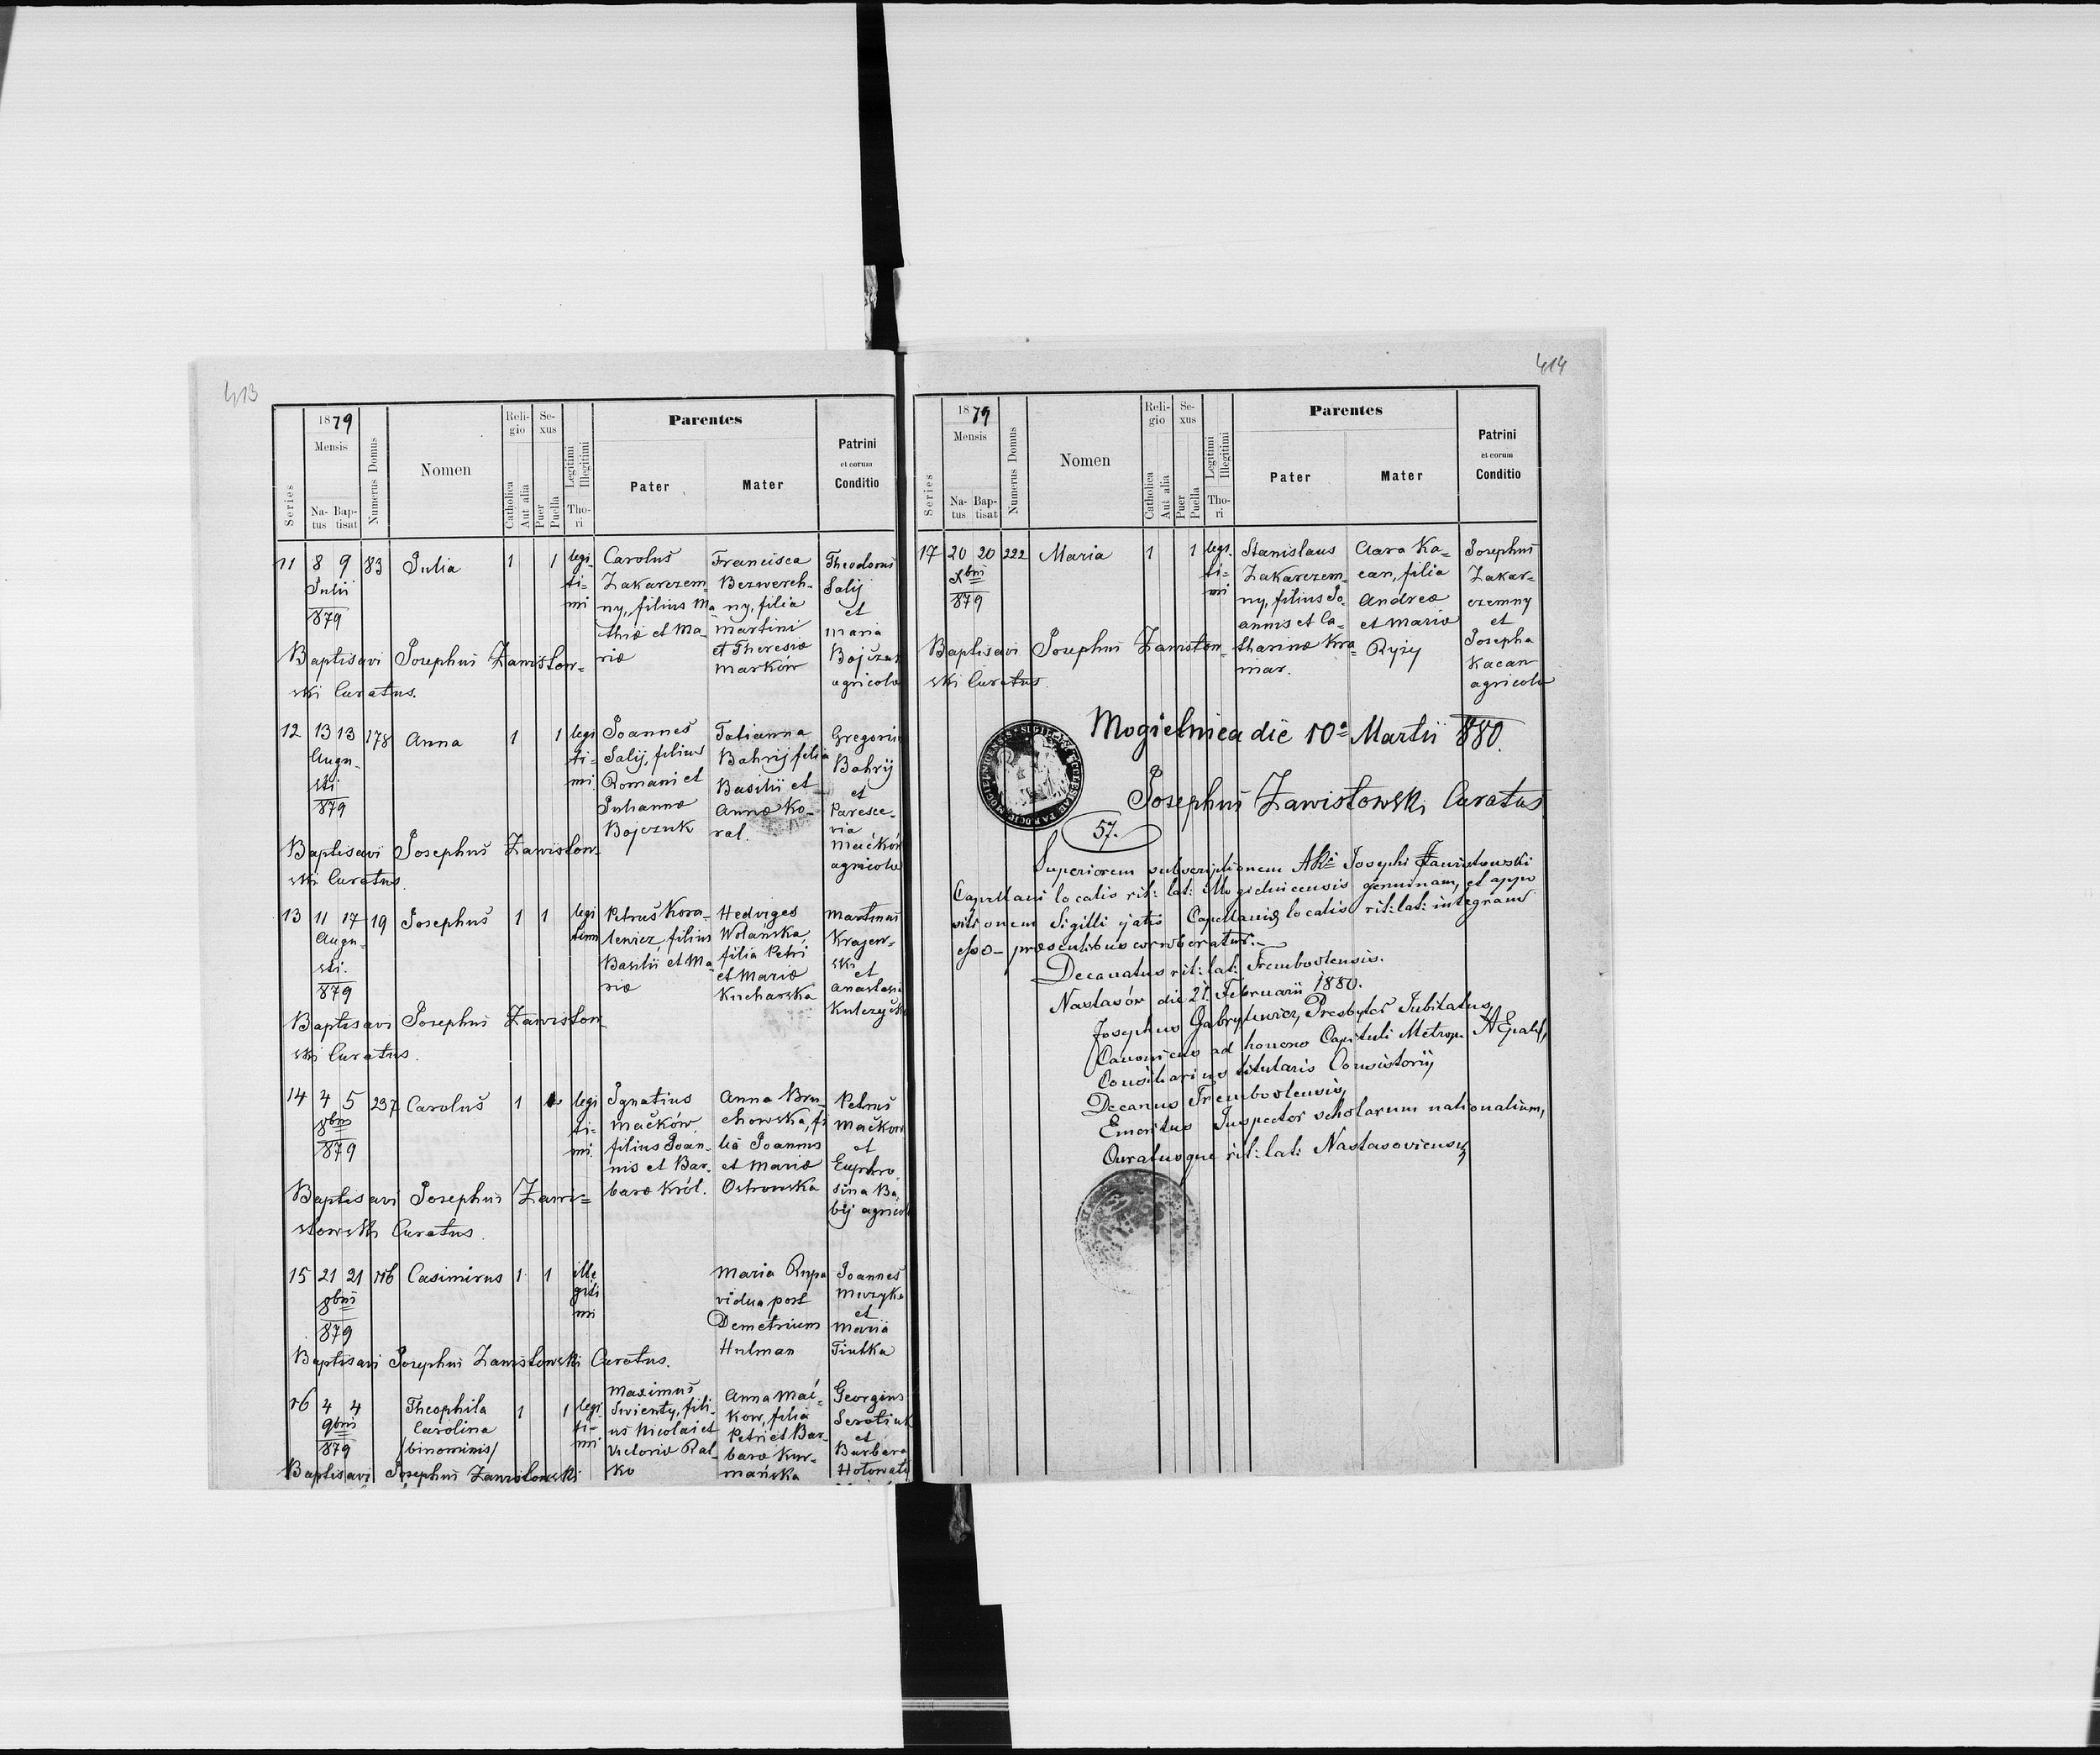 413
1879
Mensis
Series
Na-
tus
Bap-
tisat
Numerus Domus
Nomen
Reli-
gio
Catholica
Aut alia
Se-
xus
Puer
Puella
Legitimi
Illegitimi
Tho-
ri
Parentes
Pater
Mater
Patrini
et eorum
Conditio
11 8 9 83 Julia 1 1
Julii
879
legi
ti=
mi
Carolus
Zakarczem
ny, filius Ma
thiæ et Ma-
riæ
Francisca
Bezwerch-
ny, filia
Martini
et Theresiæ
Marków
Theodorus
Salij
et
Maria
Bojczuk
agricolæ
Baptisavi Josephus Zawistow=
ski Curatus.
12 13 13 178 Anna 1 1
Augu-
sti
879
legi
ti=
mi
Joannes
Salij, filius
Romani et
Juliannæ
Bojczuk
Tatianna
Bahrij filia
Basilii et
Annæ Ko-
ral.
Gregorius
Bahrij
et
Parasce-
via
Maćków
agricolæ
Baptisavi Josephus Zawistow-
ski Curatus.
13 11 17 19 Josephus 1 1
Augu-
sti.
879
legi
timi
Petrus Kova-
lewicz, filius
Basilii et Ma
riæ
Hedviges
Wolańska,
filia Petri
et Mariæ
Kucharska
Martinus
Krajew-
ski
et
Anastasia
Baptisavi Josephus Zawistow
ski Curatus.
14 4 5 237 Carolus 1 1
8bris
879
legi
ti=
mi.
Ignatius
Maćków,
filius Joan-
nis et Bar-
baræ Król.
Anna Bru-
chowska, fi
lia Joannis
et Mariæ
Ostrowska
Petrus
Maćkow
et
Euphro
sina Ba
bij agricol
Baptisavi Josephus Zawi=
stowski Curatus.
15 21 21 116 Casimirus 1 1
8bris
879
ille
giti
mi
Maria Rupa
vidua post
Demetrium
Hulman
Joannes
Muzyka
et
Maria
Tiutka
Baptisavi Josephus Zawistowski Curatus.
16 4 4 Theophila 1 1
9bris
879
Carolina
/binominis/
legi
ti=
mi
Maximus
Swienty, fili-
us Nicolai et
Victoriæ Ral-
ko
Anna Mać=
kow, filia
Petri et Bar-
baræ Kur-
mańska
Georgius
Serotiuk
et
Barbara
Hołowaty
Baptisavi Josephus Zawistowski
414
1879
Mensis
Series
Na-
tus
Bap-
tisat
Numerus Domus
Nomen
Reli-
gio
Catholica
Aut alia
Se-
xus
Puer
Puella
Legitimi
Illegitimi
Tho-
ri
Parentes
Pater
Mater
Patrini
et eorum
Conditio
17 20 20 222 Maria 1 1
Xbris
879
legi.
ti=
mi
Stanislaus
Zakarczem
ny, filius Jo-
annis et Ca=
tharinæ Kra=
mar.
Clara Ka=
can, filia
Andreæ
et Mariæ
Ryzy
Josephus
Zakar=
czemny
et
Josepha
Kacan
agricolæ
Baptisavi Josephus Zawistow-
ski Curatus.
Mogielnica die 10a Martii 880.
Josephus Zawistowski Curatus
57.
Superiorem subscriptionem Josephi Zawistowski
Capellani localis rit: lat: Mogielnicensis genuinam, et appo
sitionem Sigilli Capellaniæ localis rit: lat: integram
esse - præsentibus corroboratur.-
Decanatus rit: lat: Trembovlensis.
Nastasów die 21. Februarii 1880.
Josephus Gabrylewicz, Presbyter Jubilatus,
Canonicus ad honores Capituli Metrop.
Consiliarius titularis Consistorii,
Decanus Trembovlensis,
Emeritus Inspector scholarum nationalium,
Curatusque rit: lat: Nastasoviensis